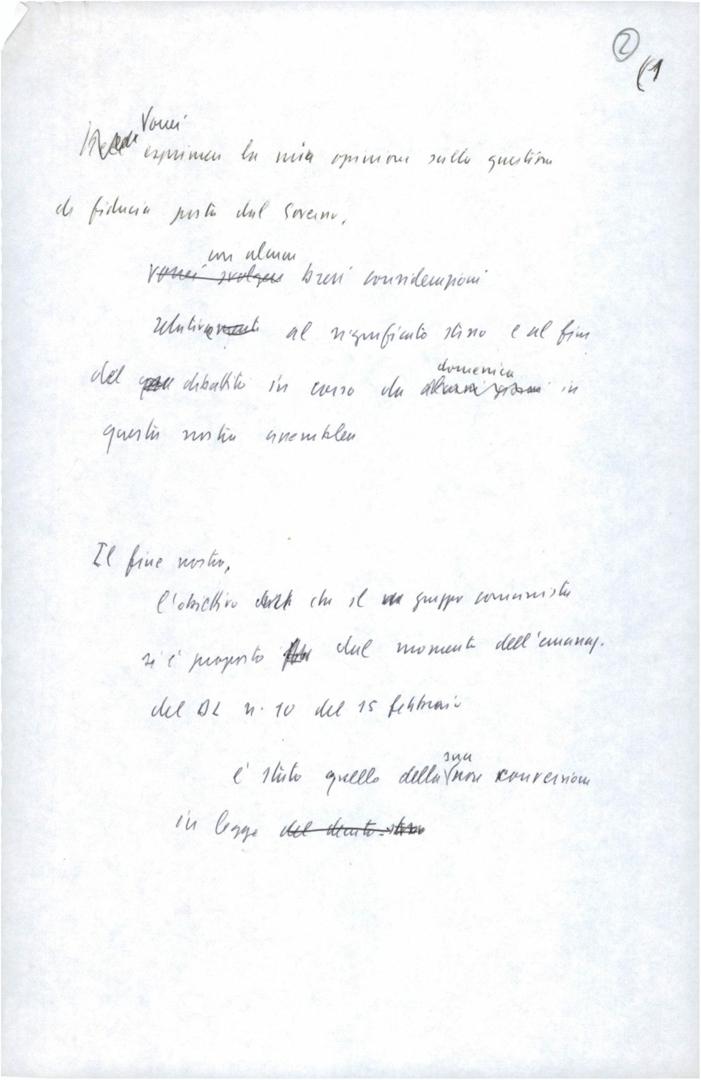 2
(1
Vorrei
esprimere la mia opinione sulla questione
di fiducia posta dal Governo,
con alcune
vorrei svolgere brevi considerazioni
relativamente al significato stesso e al fine
domenica
del dibattito in corso da alcuni giorni in
questa nostra assemblea
Il fine nostro,
l'obiettivo che il gruppo comunista
si è proposto dal momento dell'emanaz.
del DL n. 10 del 15 febbraio
sua
è stato quello della non conversione
in legge del decreto stesso